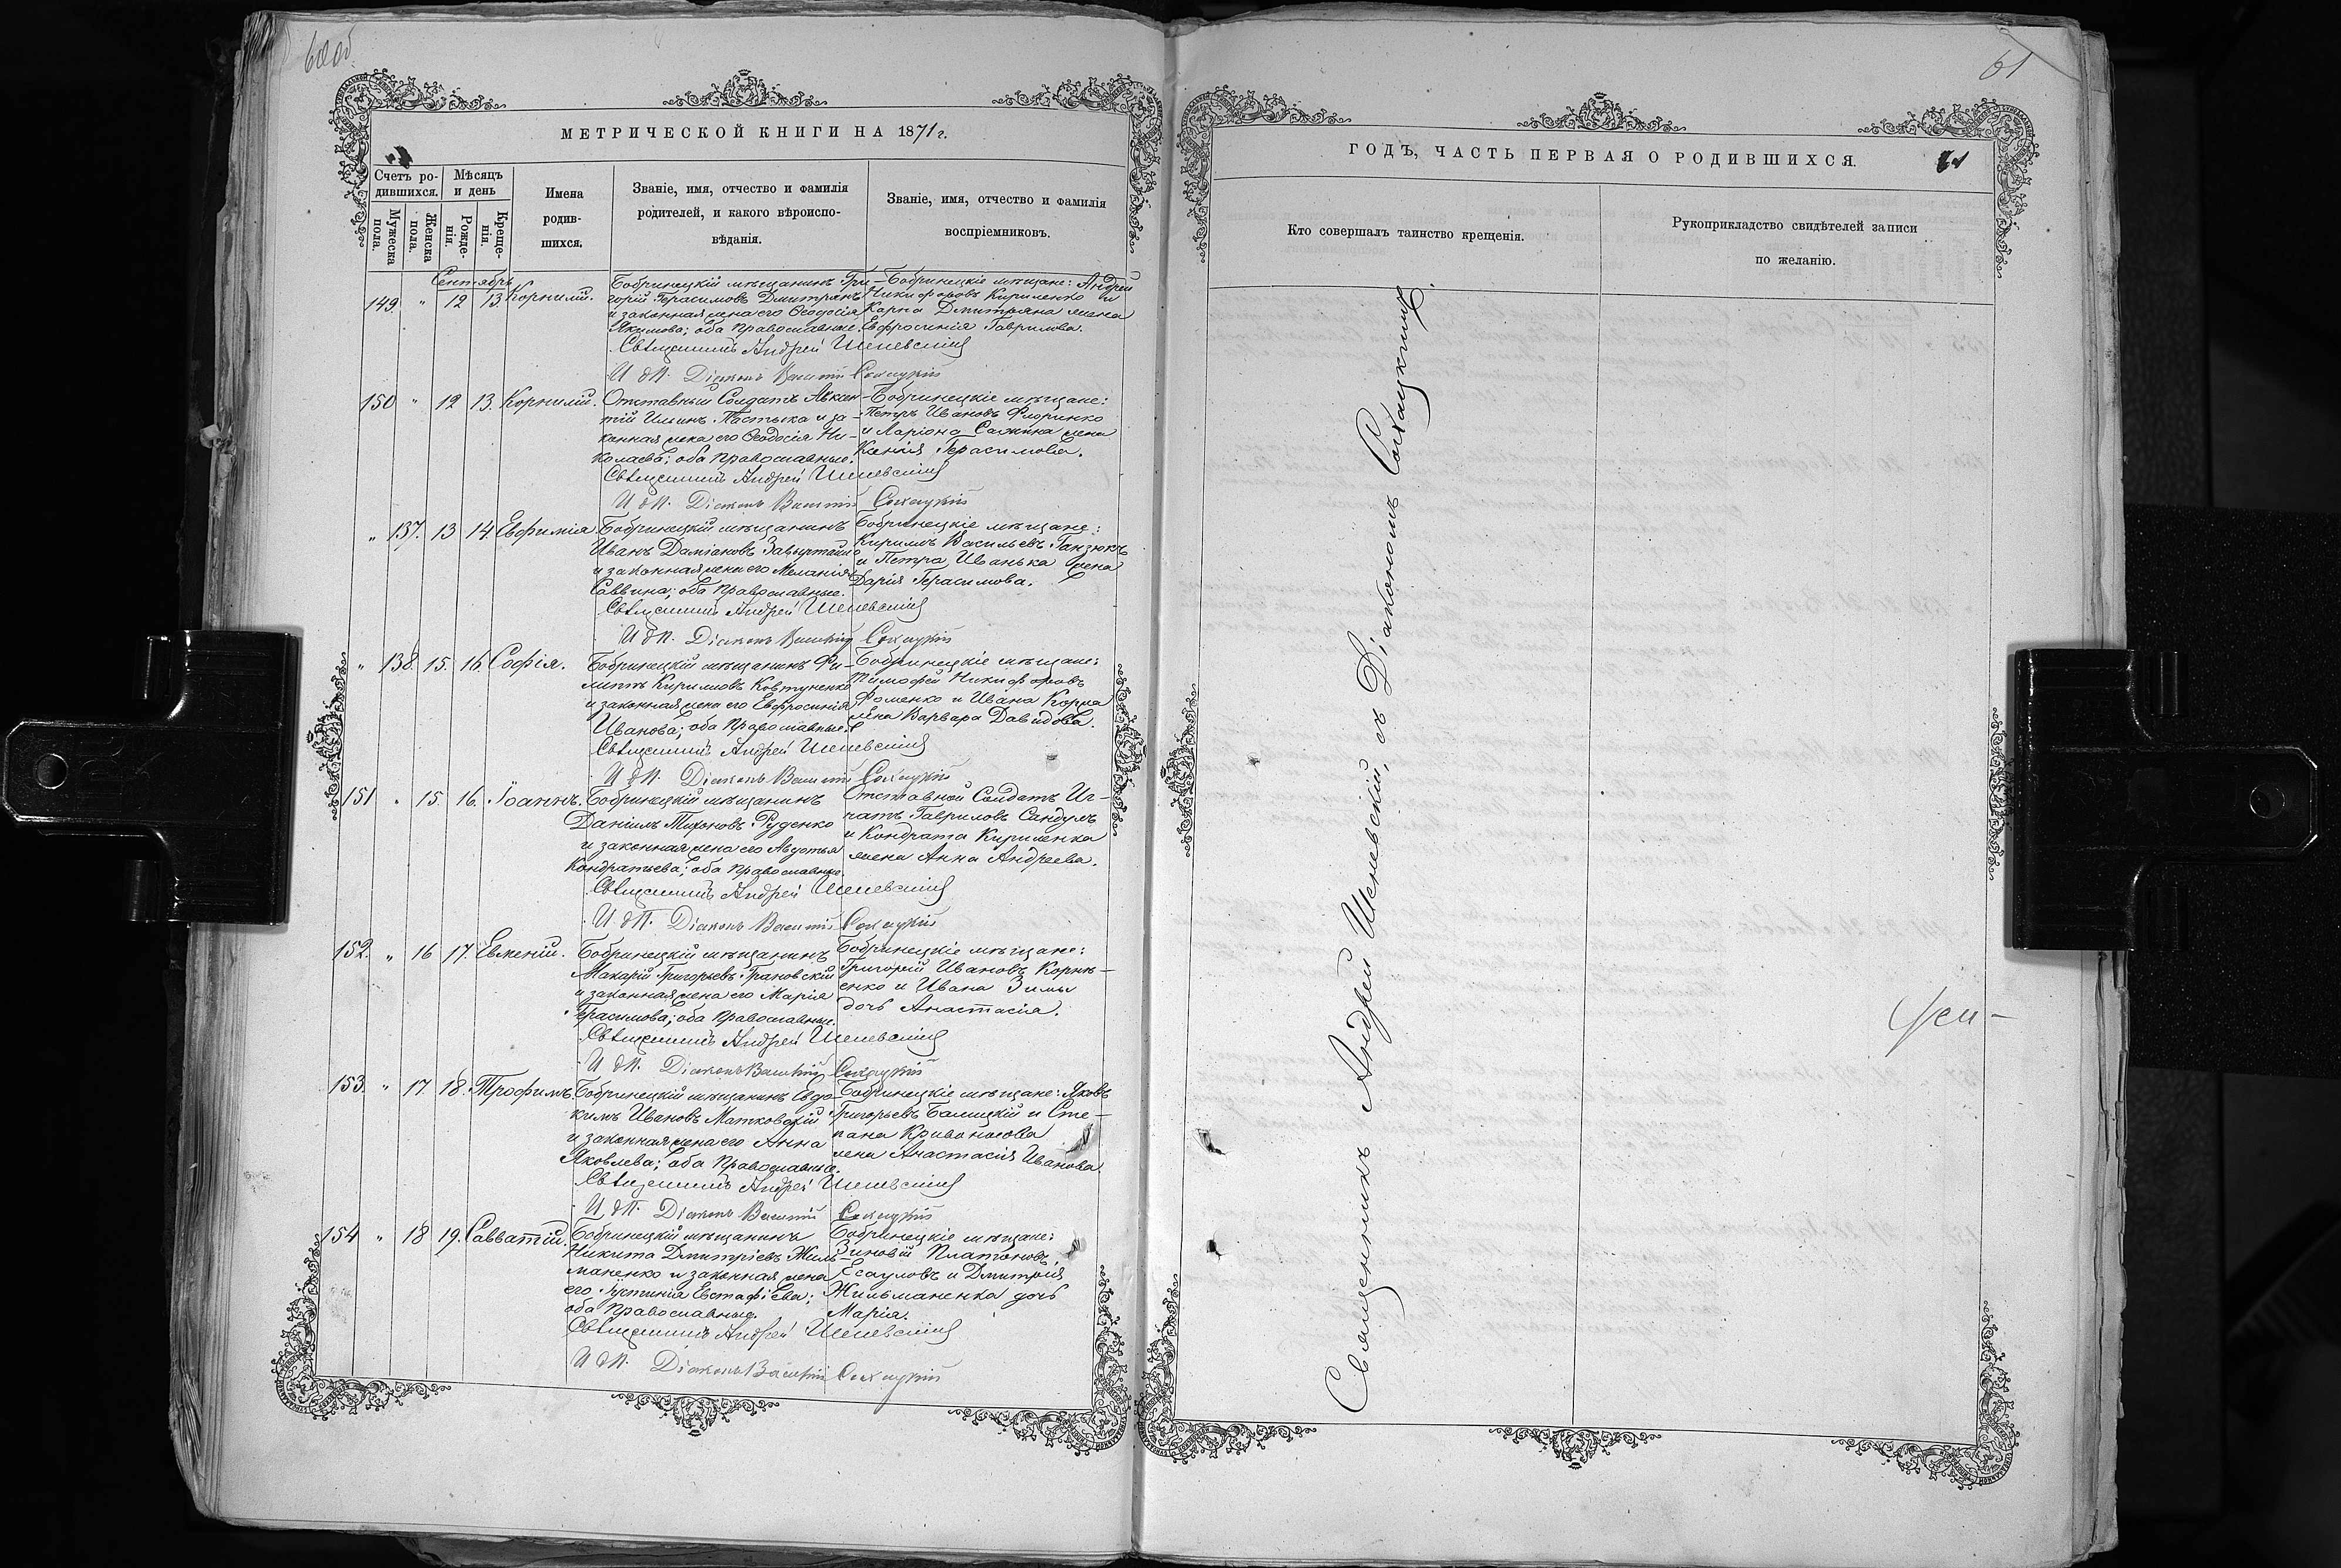 60 об.
МЕТРИЧЕСКОЙ КНИГИ НА 1871 г.
Счетъ ро-
дившихся.
Мѣсяцъ
и день
Имена
родив-
шихся.
Званіе, имя, отчество и фамилія
родителей, и какого вѣроиспо-
вѣданія.
Званіе, имя, отчество и фамилія
воспріемниковъ.
Мужеска
пола.
Женска
пола.
Рожде-
нія.
Креще-
нія.
Сентябрь
149 " 12 13 Корнилій.
Бобринецкій мѣщанинъ Гри-
горій Герасимовъ Дмитрянъ
и законная жена его Ѳеодосія
Якимова; оба Православные.
Бобринецкіе мѣщане: Андрей
Никифоровъ Кириленко и
Карпа Дмитряна жена
Евфросинія Гаврилова.
Священникъ Андрей Шеневскій
И д П. Діаконъ Василій Сокацкій
150 " 12 13. Корнилій.
Отставный Солдатъ Авксен-
тій Ильинъ Пастыка и за-
конная жена его Ѳеодосія Ни-
колаева; оба Православные.
Бобринецкіе мѣщане:
Петръ Ивановъ Флоринко
и Ларіона Сажина жена
Ксенія Герасимова.
Священникъ Андрей Шеневскій
И д П. Діаконъ Василій Сокацкій
" 137. 13 14. Евфимія
Бобринецкій мѣщанинъ
Иванъ Даміановъ
и законная жена его Меланія
Саввина; оба Православные.
Бобринецкіе мѣщане:
Кирилъ Васильевъ Ганзюкъ
и Петра Иванька жена
Дарія Герасимова.
Священникъ Андрей Шеневскій
И д П. Діаконъ Василій Сокацкій
" 138. 15. 16. Софія.
Бобринецкій мѣщанинъ Фи-
липъ Кириловъ Ковтуненко
и законная жена его Евфросинія
Иванова; оба Православные.
Бобринецкіе мѣщане:
Тимофей Никифоровъ
Фоменко и Ивана Корпа
жена Варвара Давидова.
Священникъ Андрей Шеневскій
И д П. Діаконъ Василій Сокацкій
151 " 15. 16. Іоаннъ.
Бобринецкій мѣщанинъ
Даніилъ Тихоновъ Руденко
и законная жена его Августья
Кондратьева; оба Православные.
Отставной Солдатъ Иг-
натъ Гавриловъ Сандулъ
и Кондрата Кириленка
жена Анна Андреева.
Священникъ Андрей Шеневскій
И д П. Діаконъ Василій Сокацкій
152. " 16 17. Евменій.
Бобринецкій мѣщанинъ
Макарій Григорьевъ Грановскій
и законная жена его Марія
Герасимова; оба Православные.
Бобринецкіе мѣщане:
Григорій Ивановъ Корнѣ-
енко и Ивана Зимы
дочь Анастасія.
Священникъ Андрей Шеневскій
И д П. Діаконъ Василій Сокацкій
153. " 17. 18. Трофимъ.
Бобринецкій мѣщанинъ Евдо-
кимъ Ивановъ Матковскій
и законная жена его Анна
Яковлева; оба Православные.
Бобринецкіе мѣщане: Яковъ
Григорьевъ Балицкій и Сте-
пана Кривоносова
жена Анастасія Иванова
Священникъ Андрей Шеневскій
И д П. Діаконъ Василій Сокацкій
154 " 18 19. Савватій.
Бобринецкій мѣщанинъ
Никита Дмитріевъ Жиль-
маненко и законная жена
его Іустинія Евстафіева;
оба Православные.
Бобринецкіе мѣщане:
Зиновій Платоновъ
Есауловъ и Дмитрія
Жильманенка дочь
Марія.
Священникъ Андрей Шеневскій
И д П. Діаконъ Василій Сокацкій
61
ГОДЪ, ЧАСТЬ ПЕРВАЯ О РОДИВШИХСЯ.
61
Кто совершалъ таинство крещенія.
Рукоприкладство свидѣтелей записи
по желанію.
Священникъ Андрей Шеневскій, съ Діакономъ Сокацкимъ.